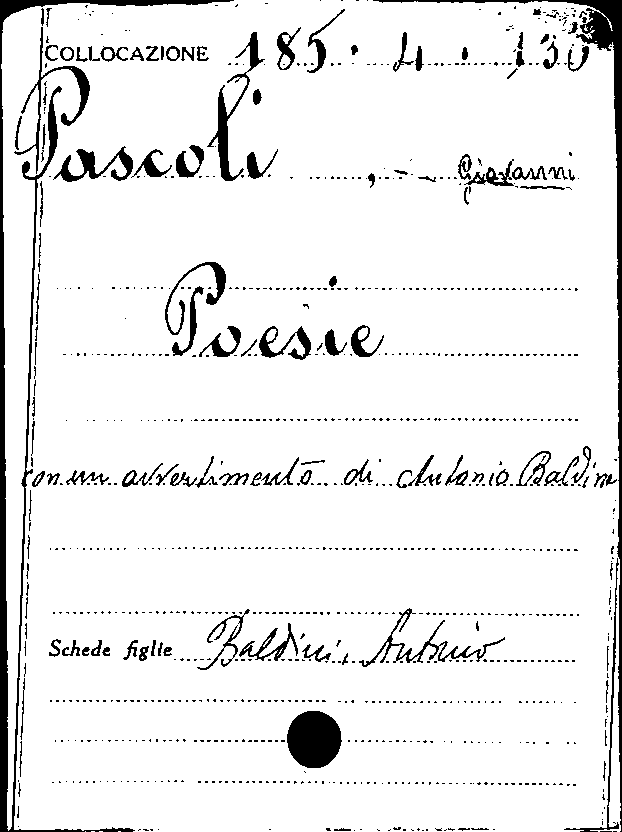 COLLOCAZIONE 185. 4. 130
Pascoli, - Giovanni
Poesie
con un avvertimento di Antonio Baldini
Schede figlie Baldini, Antonio